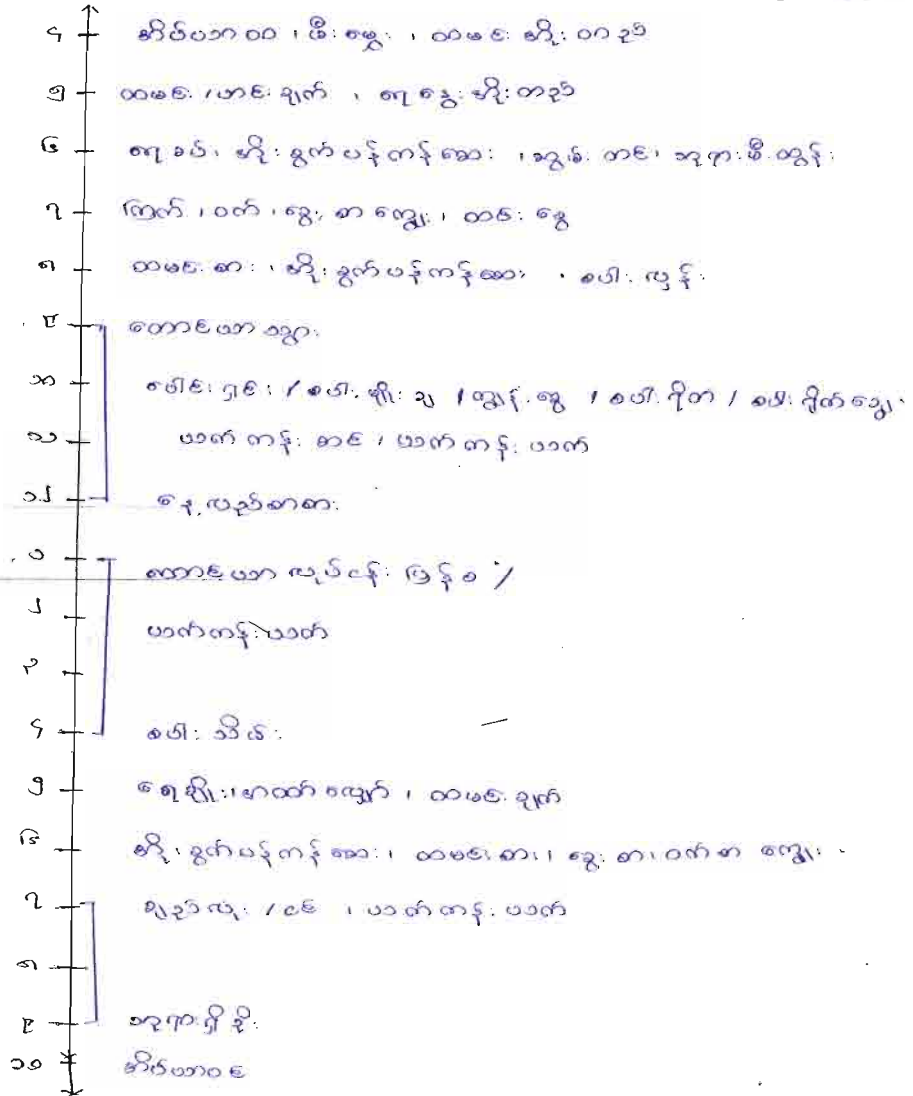 ၄ အိပ်ယာထ ၊ မီးမွှေး ၊ ထမင်းအိုးတည်
၅ ထမင်း / ဟင်းချက် ၊ ရေနွေးအိုးတည်
၆ ရေခပ်၊ အိုးခွက်ပန်ကန်ဆေး ၊ ဆွမ်းတင်၊ ဘုရားမီးထွန်း
၇ ကြက် ၊ ဝက် ၊ ခွေး စာကျွေး ၊ ထင်းခွေ
၈ ထမင်းစား ၊ အိုးခွက်ပန်ကန်ဆေး ၊ စပါးလှန်း
၉ တောင်ယာသွား
၁၀ ပေါင်းရှင်း / စပါးမျိုးချ / ကျွန်းခွေ / စပါးရိတ် / စပါးရိုက်ချွေ
၁၁ ယက်ကန်းစင် / ယက်ကန်းယက်
၁၂ နေ့လည်စာစား
၁ တောင်ယာလုပ်ငန်းပြန်စ /
၂ ယက်ကန်းယက်
၃
၄ စပါးသိမ်း
၅ ရေချိုး၊ အဝတ်လျှော် ၊ ထမင်းချက်
၆ အိုးခွက်ပန်ကန်ဆေး၊ ထမင်းစား၊ ခွေးစာ၊ ဝက်စာကျွေး
၇ ချည်လုံး / ငင် ၊ ယက်ကန်းယက်
၈
၉ ဘုရားရှိခိုး
၁၀ အိပ်ယာဝင်